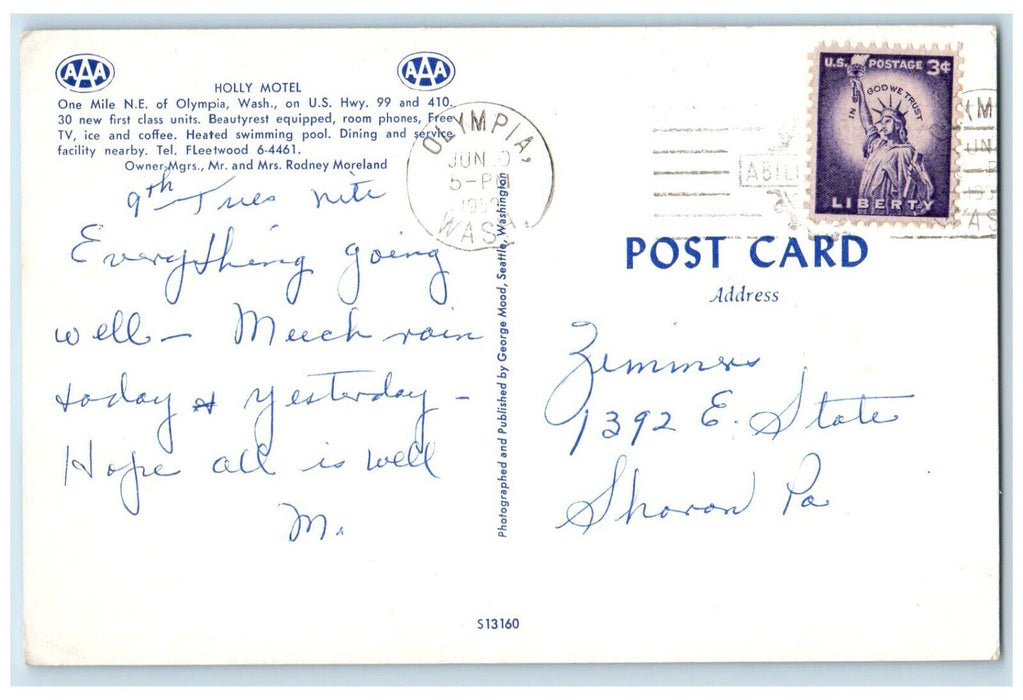 AAA AAA
HOLLY MOTEL
One Mile N.E. of Olympia, Wash., on U.S. Hwy. 99 and 410.
30 new first class units. Beautyrest equipped, room phones, Free
TV, ice and coffee. Heated swimming pool. Dining and service
facility nearby. Tel. FLeetwood 6-4461.
Owner-Mgrs., Mr. and Mrs. Rodney Moreland
9th Tues nite
Everything going
well - Much rain
today & yesterday -
Hope all is well
M.
OLYMPIA,
JUN
5-PM
WASH.
Photographed and Published by George Mood, Seattle, Washington
S13160
U.S. POSTAGE 3¢
IN GOD WE TRUST
LIBERTY
POST CARD
Address
Zimmers
1392 E. State
Sharon Pa